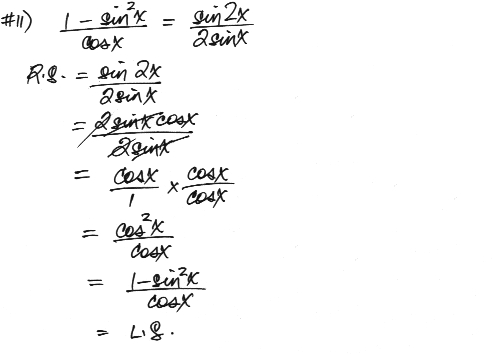 #11) (1 - sin²x)/(cosx) = (sin2x)/(2sinx)
R.S. = (sin 2x)/(2sinx)
= (2sinx cosx)/(2sinx)
= (cosx)/1 × (cosx)/(cosx)
= (cos²x)/(cosx)
= (1-sin²x)/(cosx)
= L.S.